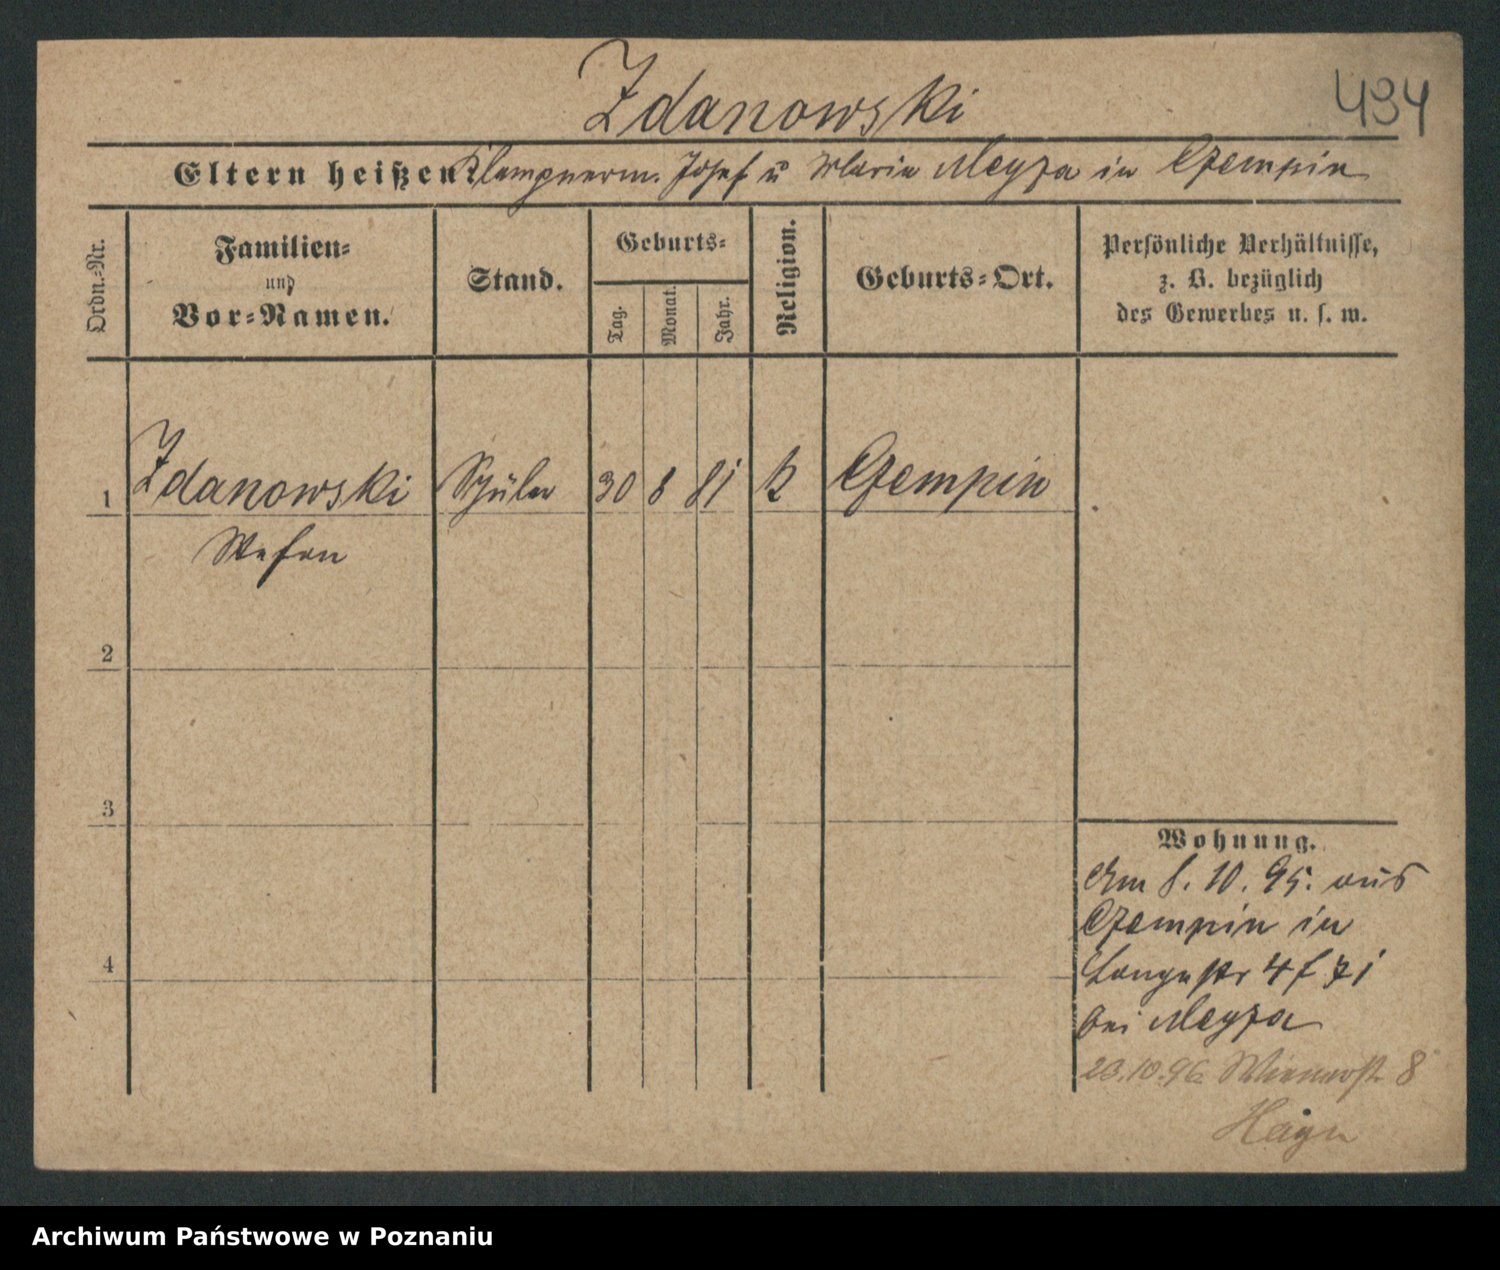 Zdanowski
494
Eltern heißen: Klempnerm. Josef u Maria Meyza in Czempin
Ordn.-Nr.
Familien-
und
Vor-Namen.
Stand.
Geburts-
Tag.
Monat.
Jahr.
Religion.
Geburts-Ort.
Persönliche Verhältnisse,
z. B. bezüglich
des Gewerbes u. s. w.
1 Zdanowski Schüler 30 8 81 k Czempin
2
3
4
Wohnung.
Am 8. 10. 95. aus
Czempin in
Langestr 4
bei Meyza
23.10.96 Wienerstr 8
Archiwum Państwowe w Poznaniu